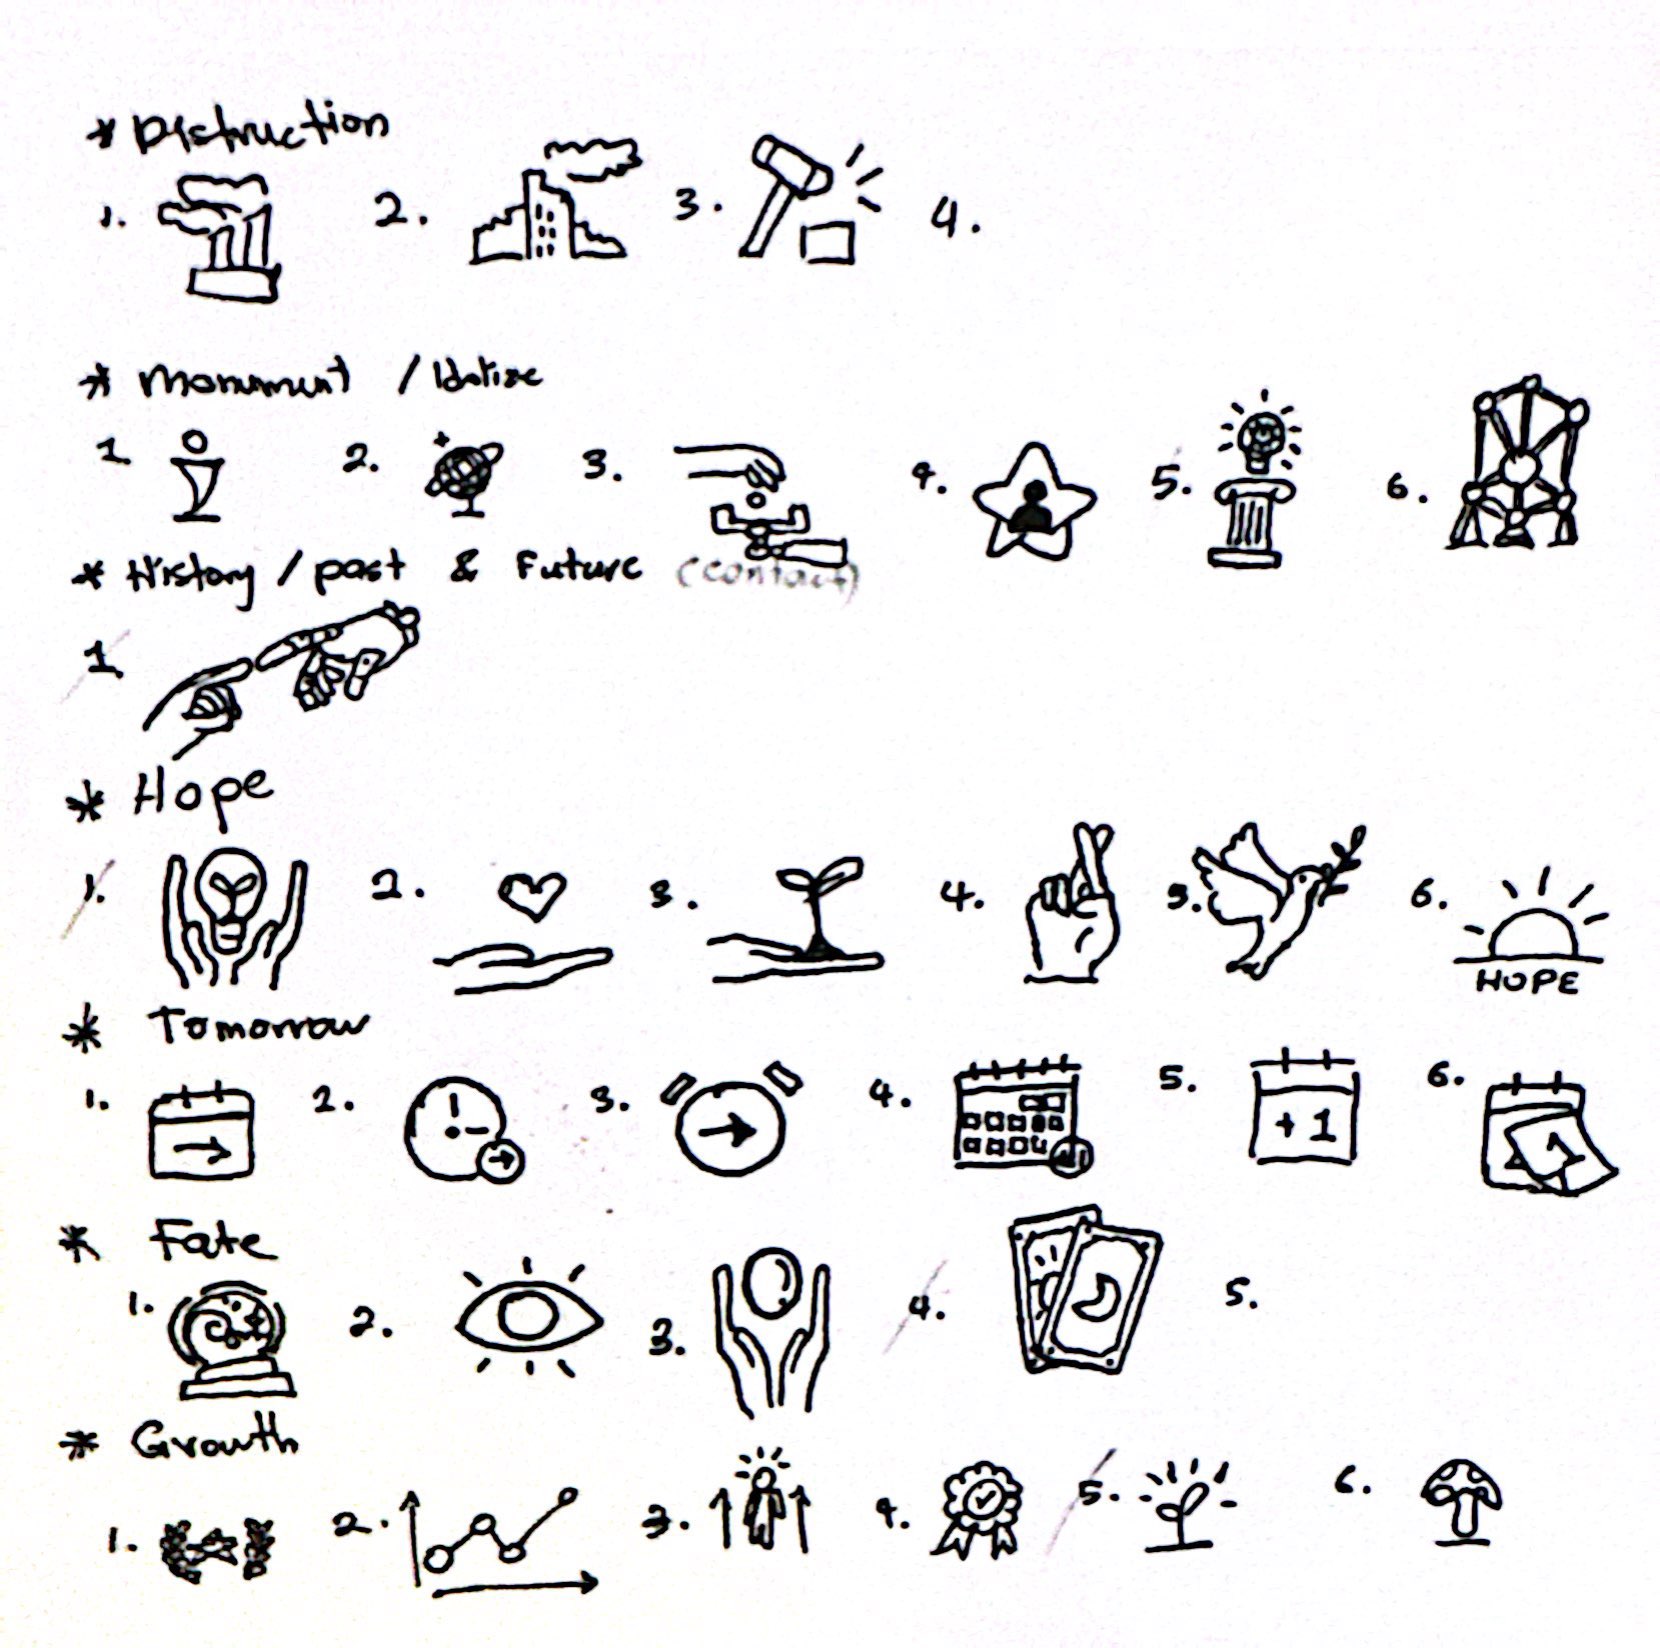 * Distruction
1. 2. 3. 4.
* Monument / Idolize
1 2. 3. 4. 5. 6.
* History / past & Future (contact)
1
* Hope
1. 2. 3. 4. 5. 6.
HOPE
* Tomorrow
1. 2. 3. 4. 5. 6.
+1
* Fate
1. 2. 3. 4. 5.
* Growth
1. 2. 3. 4. 5. 6.